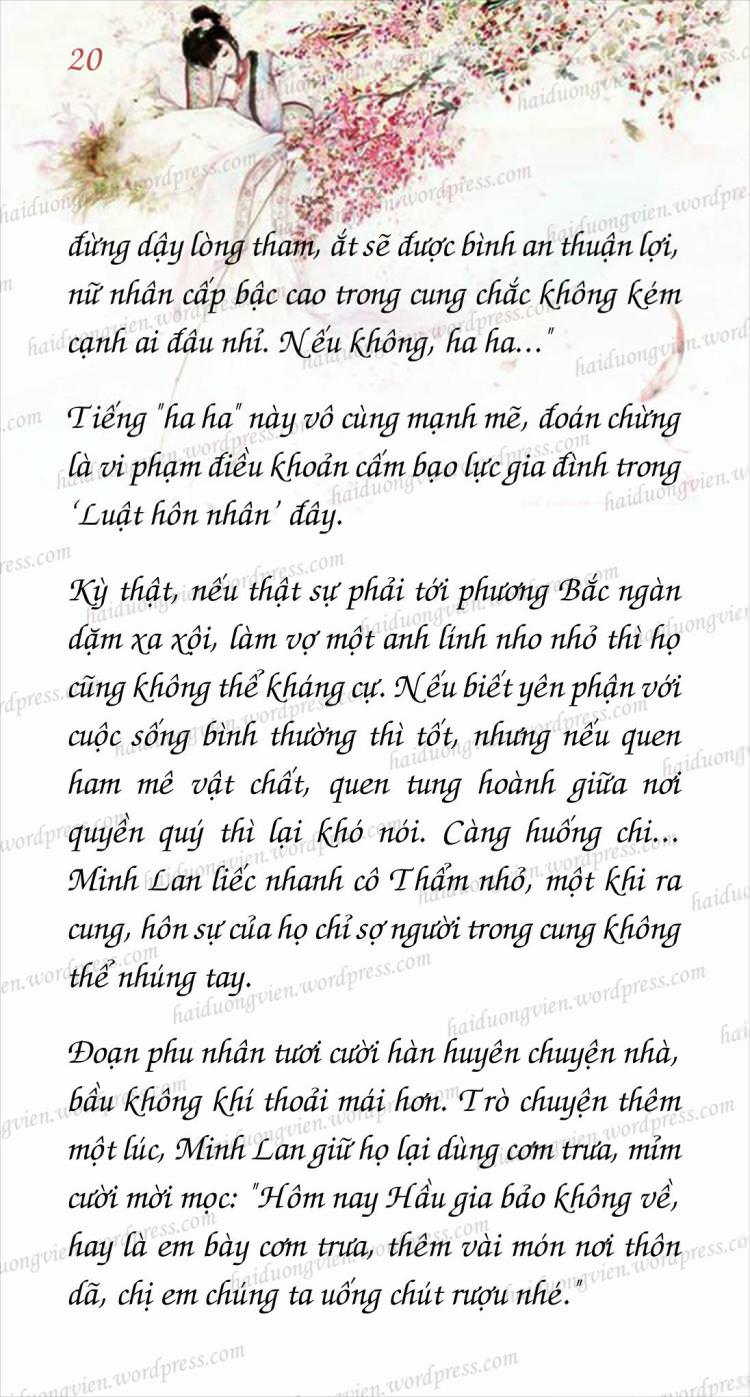 20
đừng dậy lòng tham, ắt sẽ được bình an thuận lợi,
nữ nhân cấp bậc cao trong cung chắc không kém
cạnh ai đâu nhỉ. Nếu không, ha ha..."
Tiếng "ha ha" này vô cùng mạnh mẽ, đoán chừng
là vi phạm điều khoản cấm bạo lực gia đình trong
‘Luật hôn nhân’ đây.
Kỳ thật, nếu thật sự phải tới phương Bắc ngàn
dặm xa xôi, làm vợ một anh lính nho nhỏ thì họ
cũng không thể kháng cự. Nếu biết yên phận với
cuộc sống bình thường thì tốt, nhưng nếu quen
ham mê vật chất, quen tung hoành giữa nơi
quyền quý thì lại khó nói. Càng huống chi...
Minh Lan liếc nhanh cô Thẩm nhỏ, một khi ra
cung, hôn sự của họ chỉ sợ người trong cung không
thể nhúng tay.
Đoạn phu nhân tươi cười hàn huyên chuyện nhà,
bầu không khí thoải mái hơn. Trò chuyện thêm
một lúc, Minh Lan giữ họ lại dùng cơm trưa, mỉm
cười mời mọc: "Hôm nay Hầu gia bảo không về,
hay là em bày cơm trưa, thêm vài món nơi thôn
dã, chị em chúng ta uống chút rượu nhé."
haiduongvien.wordpress.com